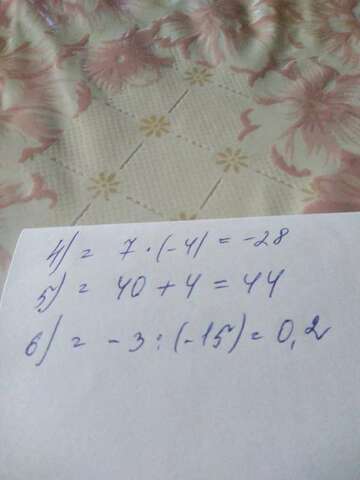 4) = 7 · (-4) = -28
5) = 40 + 4 = 44
6) = - 3 : (-15) = 0,2